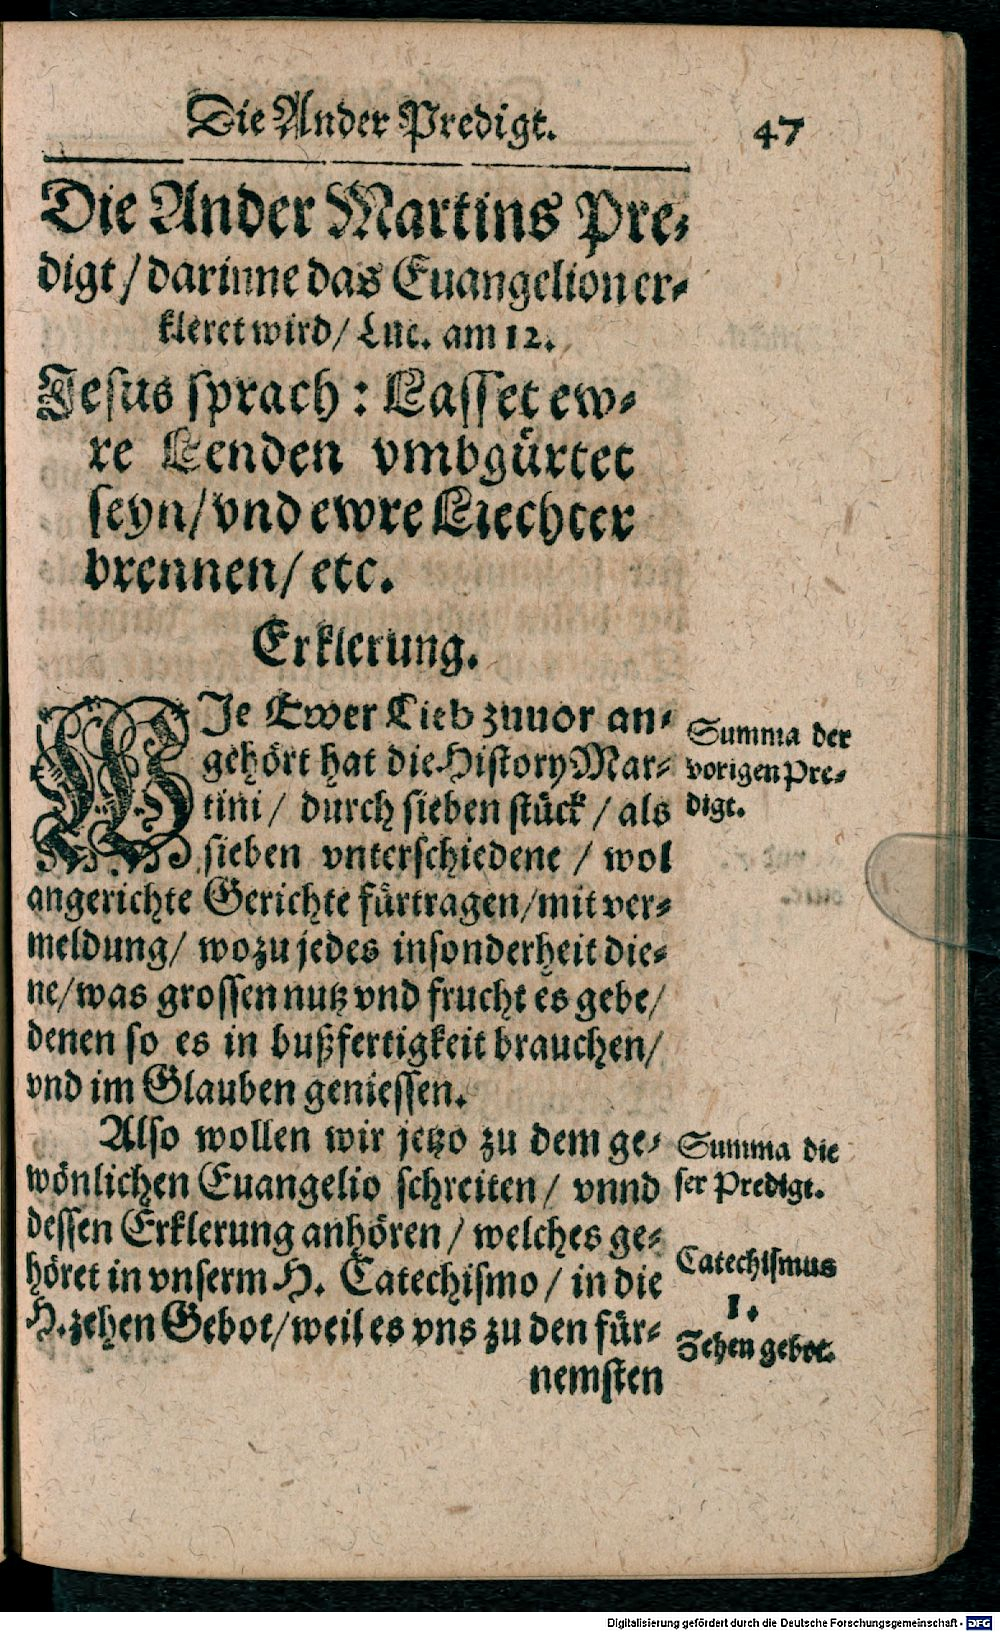 Die Ander Predigt. 47
Die Ander Martins Pre-
digt/ darinne das Euangelion er-
kleret wird/ Luc. am 12.
Jesus sprach: Lasset ew-
re Lenden vmbgürtet
seyn/ vnd ewre Liechter
brennen/ etc.
Erklerung.
WJe Ewer Lieb zuuor an-
gehört hat die History Mar-
tini/ durch sieben stück/ als
sieben vnterschiedene/ wol
angerichte Gerichte fürtragen/ mit ver-
meldung/ wozu jedes insonderheit die-
ne/ was grossen nutz vnd frucht es gebe/
denen so es in bußfertigkeit brauchen/
vnd im Glauben geniessen.
Also wollen wir jetzo zu dem ge-
wönlichen Euangelio schreiten/ vnnd
dessen Erklerung anhören/ welches ge-
höret in vnserm H. Catechismo/ in die
H. zehen Gebot/ weil es vns zu den für-
nemsten
Summa der
vorigen Pre-
digt.
Summa die
ser Predigt.
Catechismus
1.
Zehen gebot.
Digitalisierung gefördert durch die Deutsche Forschungsgemeinschaft - DFG